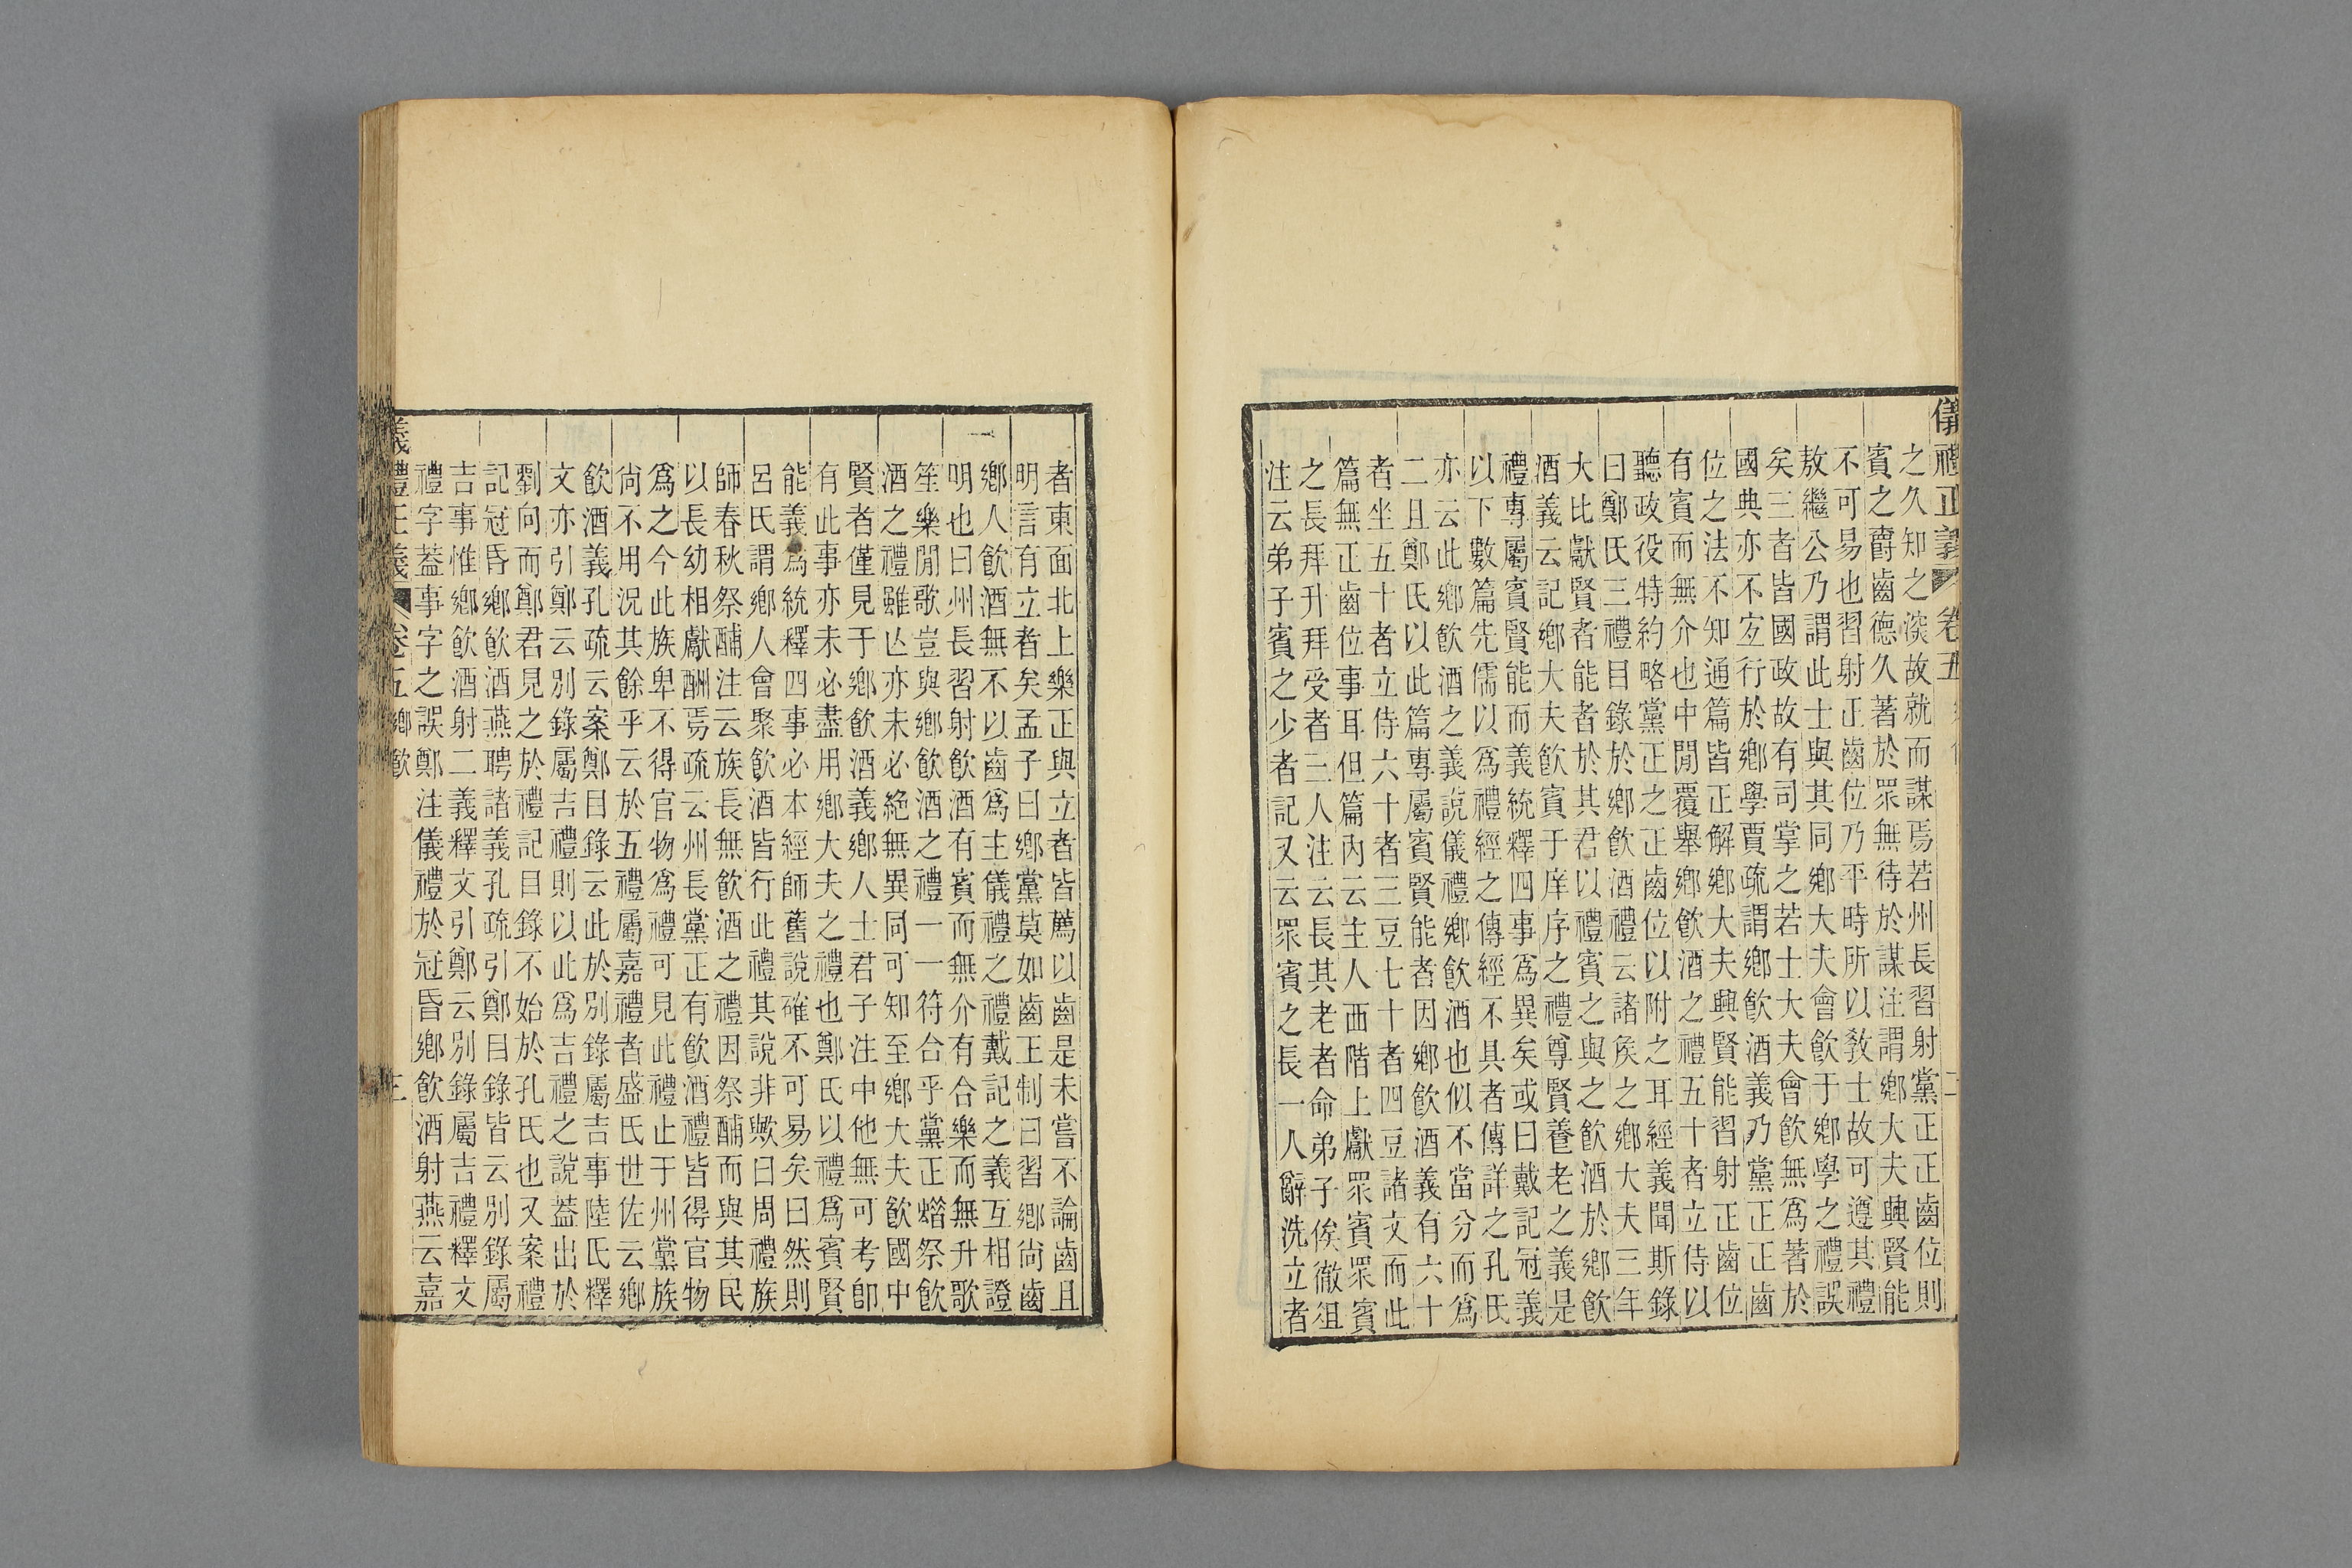 儀禮正義 卷五 二
之久知之深故就而謀焉若州長習射黨正正齒位則
賓之齒德久著於眾無待於謀注謂鄉大夫興賢能
不可易也習射正齒位乃平時所以教士故可遵其禮
敖繼公乃謂此士與其同鄉大夫會飲于鄉學之禮誤
矣三者皆國政故有司掌之若士大夫會飲無爲著於
國典亦不宐行於鄉學賈疏謂鄉飲酒義乃黨正正齒
位之法不知通篇皆正解鄉大夫興賢能習射正齒位
有賓而無介也中閒覆舉鄉飲酒之禮五十者立侍以
聽政役特約略黨正之正齒位以附之耳經義聞斯錄
曰鄭氏三禮目錄於鄉飲酒禮云諸侯之鄉大夫三年
大比獻賢者能者於其君以禮賓之與之飲酒於鄉飲
酒義云記鄉大夫飲賓于庠序之禮尊賢養老之義是
禮專屬賓賢能而義統釋四事爲異矣或曰戴記冠義
以下數篇先儒以爲禮經之傳經不具者傳詳之孔氏
亦云此鄉飲酒之義說儀禮鄉飲酒也似不當分而爲
二且鄭氏以此篇專屬賓賢能者因鄉飲酒義有六十
者坐五十者立侍六十者三豆七十者四豆諸文而此
篇無正齒位事耳但篇內云主人西階上獻眾賓眾賓
之長拜升拜受者三人注云長其老者命弟子俟徹俎
注云弟子賓之少者記又云眾賓之長一人辭洗立者
者東面北上樂正與立者皆薦以齒是未嘗不論齒且
明言有立者矣孟子曰鄉黨莫如齒王制曰習鄉尚齒
鄉人飲酒無不以齒爲主儀禮之禮戴記之義互相證
明也曰州長習射飲酒有賓而無介有合樂而無升歌
笙樂閒歌豈與鄉飲酒之禮一一符合乎黨正蜡祭飲
酒之禮雖亡亦未必絕無異同可知至鄉大夫飲國中
賢者僅見于鄉飲酒義鄉人士君子注中他無可考卽
有此事亦未必盡用鄉大夫之禮也鄭氏以禮爲賓賢
能義爲統釋四事必本經師舊說確不可易矣曰然則
呂氏謂鄉人會聚飲酒皆行此禮其說非歟曰周禮族
師春秋祭酺注云族長無飲酒之禮因祭酺而與其民
以長幼相獻酬焉疏云州長黨正有飲酒禮皆得官物
爲之今此族卑不得官物爲禮可見此禮止于州黨族
尚不用況其餘乎云於五禮屬嘉禮者盛氏世佐云鄉
飲酒義孔疏云案鄭目錄云此於別錄屬吉事陸氏釋
文亦引鄭云別錄屬吉禮則以此爲吉禮之說蓋出於
劉向而鄭君見之於禮記目錄不始於孔氏也又案禮
記冠昏鄉飲酒燕聘諸義孔疏引鄭目錄皆云別錄屬
吉事惟鄉飲酒射二義釋文引鄭云別錄屬吉禮釋文
禮字蓋事字之誤鄭注儀禮於冠昏鄉飲酒射燕云嘉
儀禮正義 卷五 鄉飲 三